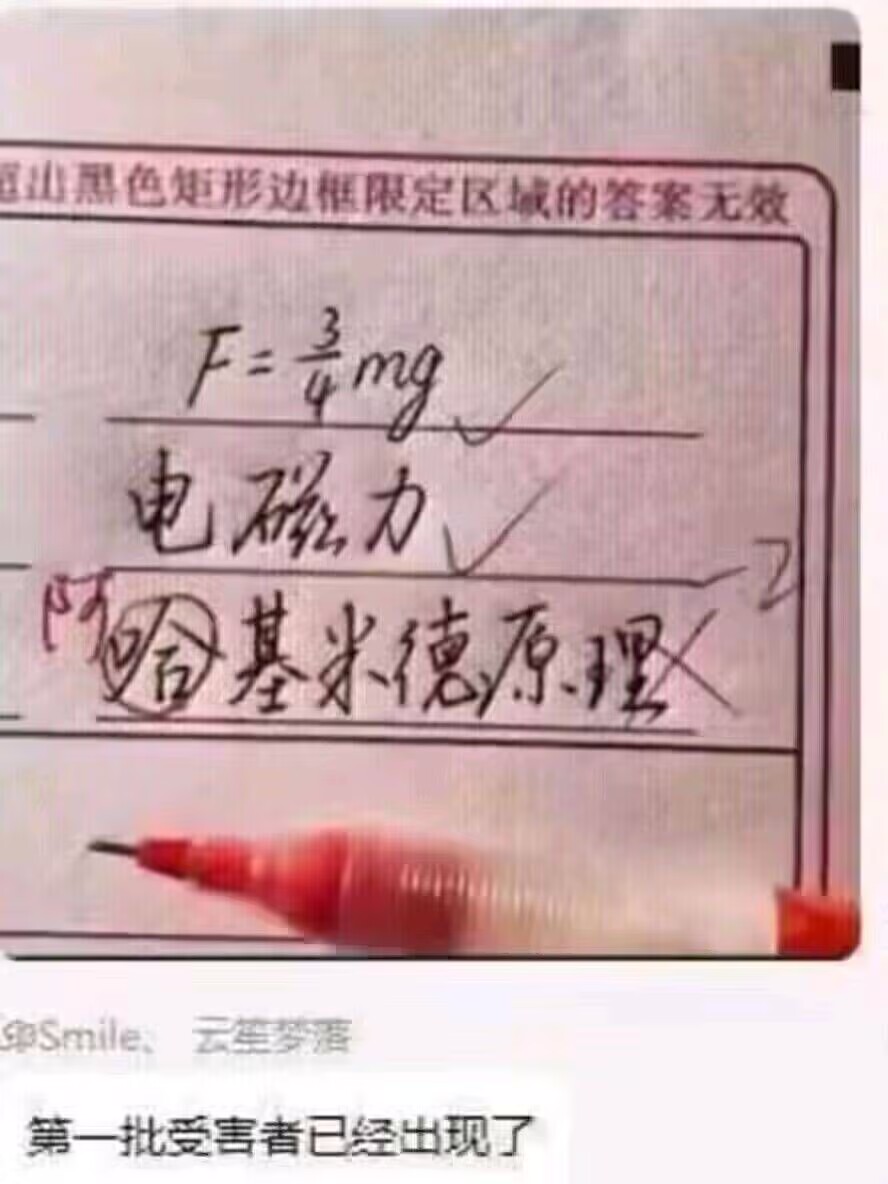 超出黑色矩形边框限定区域的答案无效
F = 3/4 mg
电磁力
-2
阿
哈基米德原理
Smile、 云笙梦落
第一批受害者已经出现了